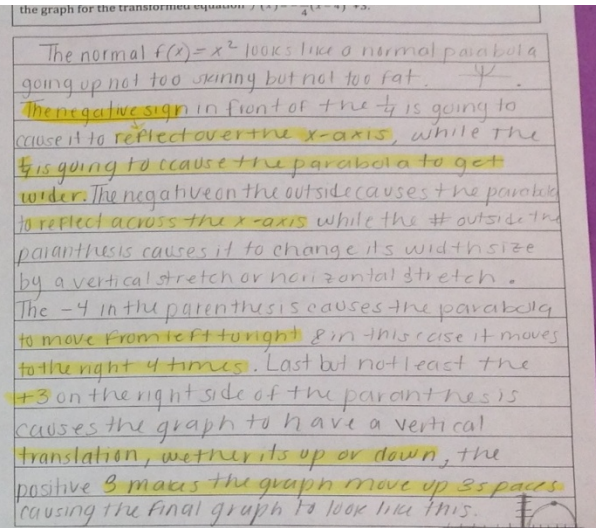 the graph for the transformed equation
The normal f(x)=x² looks like a normal parabola
going up not too skinny but not too fat.
The negative sign in front of the ¼ is going to
cause it to reflect over the x-axis, while the
¼ is going to ccause the parabola to get
wider. The negative on the outside causes the parabola
to reflect across the x-axis while the # outside the
paranthesis causes it to change its width size
by a vertical stretch or horizontal stretch.
The -4 in the parenthesis causes the parabola
to move from left to right & in this case it moves
to the right 4 times. Last but not least the
+3 on the right side of the paranthesis
causes the graph to have a vertical
translation, wether its up or down, the
positive 3 makes the graph move up 3 spaces
causing the final graph to look like this.